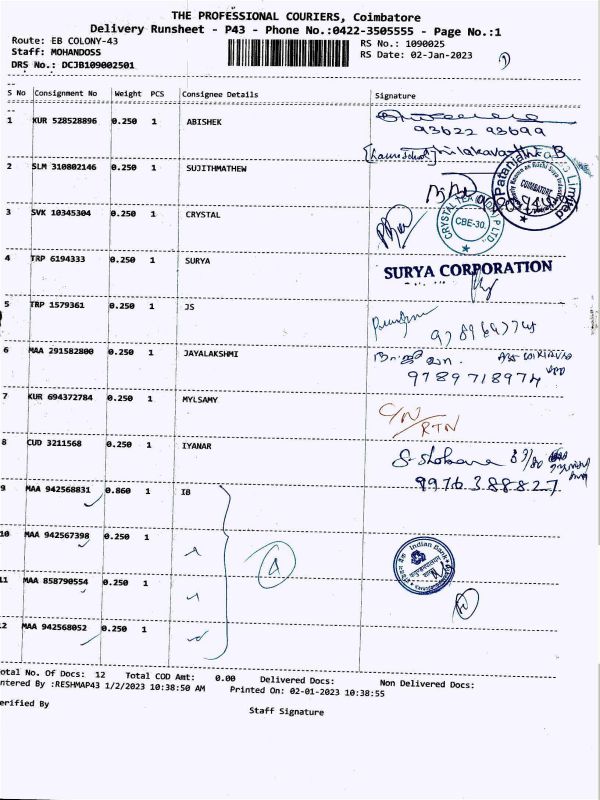 THE PROFESSIONAL COURIERS, Coimbatore
Delivery Runsheet - P43 - Phone No.:0422-3505555 - Page No.:1
Route: EB COLONY-43 RS No.: 1090025
Staff: MOHANDOSS RS Date: 02-Jan-2023
DRS No.: DCJB109002501
S No Consignment No Weight PCS Consignee Details Signature
1 KUR 528528896 0.250 1 ABISHEK
93622 93699
2 SLM 310802146 0.250 1 SUJITHMATHEW
COIMBATORE
Limited
3 SVK 10345304 0.250 1 CRYSTAL
CRYSTAL
CBE-30.
4 TRP 6194333 0.250 1 SURYA SURYA CORPORATION
5 TRP 1579361 0.250 1 JS
6 MAA 291582800 0.250 1 JAYALAKSHMI
9789718974
7 KUR 694372784 0.250 1 MYLSAMY
C/N/RTN
8 CUD 3211568 0.250 1 IYANAR
S. Shobana
9976388827
9 MAA 942568831 0.860 1 IB
10 MAA 942567398 0.250 1
Indian Bank
11 MAA 858790554 0.250 1
12 MAA 942568052 0.250 1
otal No. Of Docs: 12 Total COD Amt: 0.00 Delivered Docs: Non Delivered Docs:
ntered By :RESHMAP43 1/2/2023 10:38:50 AM Printed On: 02-01-2023 10:38:55
erified By
Staff Signature